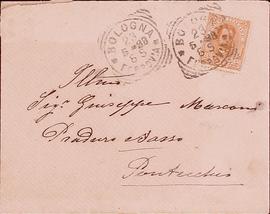 BOLOGNA
FERROVIA
BOLOGNA
Illmo
Sigr Giuseppe Marconi
Praduro e Sasso
Pontecchio